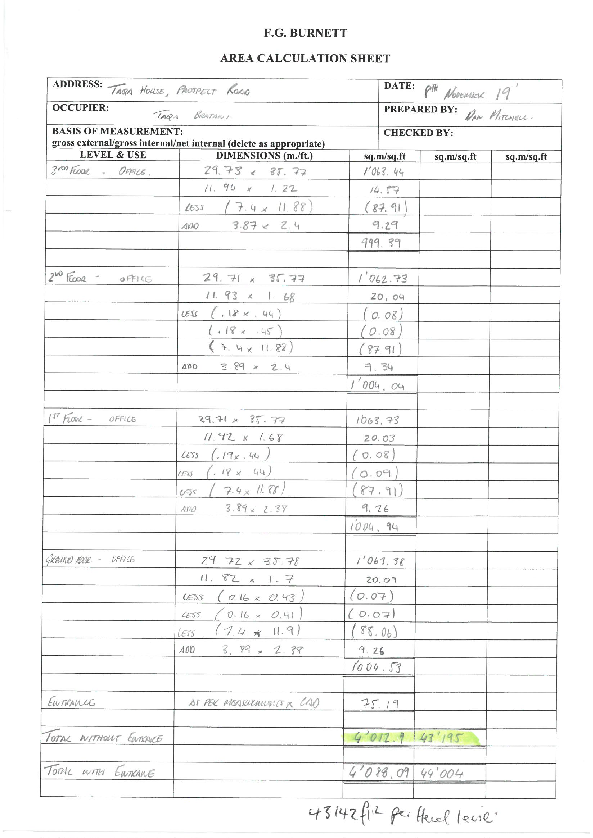 F.G. BURNETT
AREA CALCULATION SHEET
ADDRESS: TAQA HOUSE, PROSPECT ROAD DATE: NOVEMBER 19'
OCCUPIER: TAQA BRATANI PREPARED BY: DAN MITCHELL.
BASIS OF MEASUREMENT: CHECKED BY:
gross external/gross internal/net internal (delete as appropriate)
LEVEL & USE DIMENSIONS (m./ft.) sq.m/sq.ft sq.m/sq.ft sq.m/sq.ft
3RD FLOOR - OFFICE. 29.73 x 35.77 1'063.44
11.94 x 1.22 14.57
LESS (7.4 x 11.88) (87.91)
ADD 3.87 x 2.4 9.29
999.39
2ND FLOOR - OFFICE 29.71 x 35.77 1'062.73
11.93 x 1.68 20.04
LESS (.18 x .44) (0.08)
(.18 x .45) (0.08)
(7.4 x 11.88) (87.91)
ADD 3.89 x 2.4 9.34
1'004.04
1ST FLOOR - OFFICE 29.71 x 35.77 1063.73
11.92 x 1.68 20.03
LESS (.19 x .44) (0.08)
LESS (.18 x .44) (0.09)
LESS (7.4 x 11.88) (87.91)
ADD 3.89 x 2.38 9.26
1'004.94
GROUND FLOOR - OFFICE 29.72 x 35.78 1'063.38
11.82 x 1.7 20.09
LESS (0.16 x 0.43) (0.07)
LESS (0.16 x 0.41) (0.07)
LESS (7.4 x 11.9) (88.06)
ADD 3.89 x 2.38 9.26
1004.53
ENTRANCE AS PER MEASUREMENTS & CAD 75.19
TOTAL WITHOUT ENTRANCE 4'012.9 43'195
TOTAL WITH ENTRANCE 4'088.09 44'004
43142 ft2 per level.